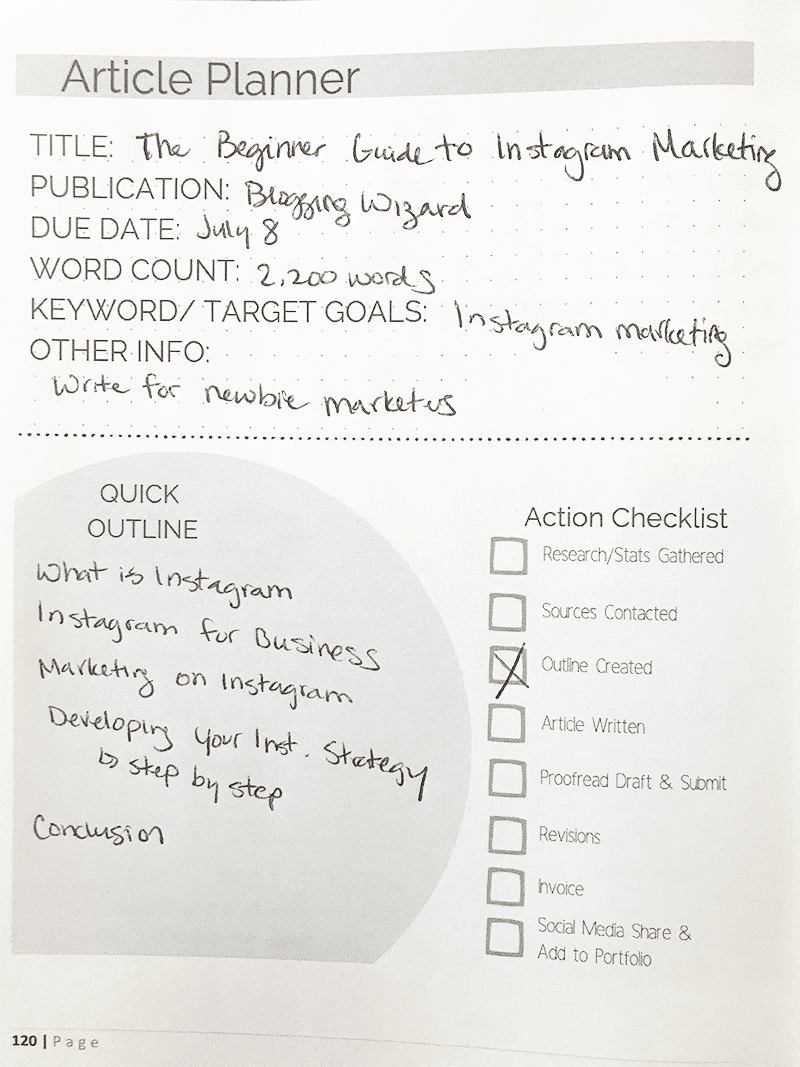 Article Planner
TITLE: The Beginner Guide to Instagram Marketing
PUBLICATION: Blogging Wizard
DUE DATE: July 8
WORD COUNT: 2,200 words
KEYWORD/ TARGET GOALS: Instagram marketing
OTHER INFO:
Write for newbie marketers
QUICK
OUTLINE
What is Instagram
Instagram for Business
Marketing on Instagram
Developing Your Inst. Strategy
↳ step by step
Conclusion
Action Checklist
Research/Stats Gathered
Sources Contacted
Outline Created
Article Written
Proofread Draft & Submit
Revisions
Invoice
Social Media Share &
Add to Portfolio
120 | Page